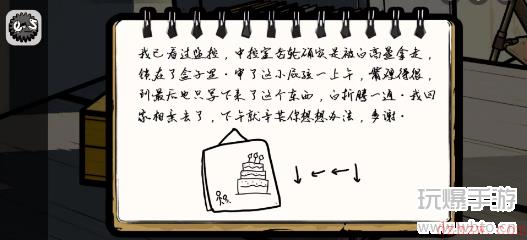 我已看过监控，中控室齿轮确实是被白高墨拿走，
锁在了盒子里。审了这小屁孩一上午，嘴硬得很，
到最后也只写下来了这个东西，白折腾一通。我回
家相亲去了，下午就辛苦你想想办法，多谢。
↓←←↓
玩爆手游